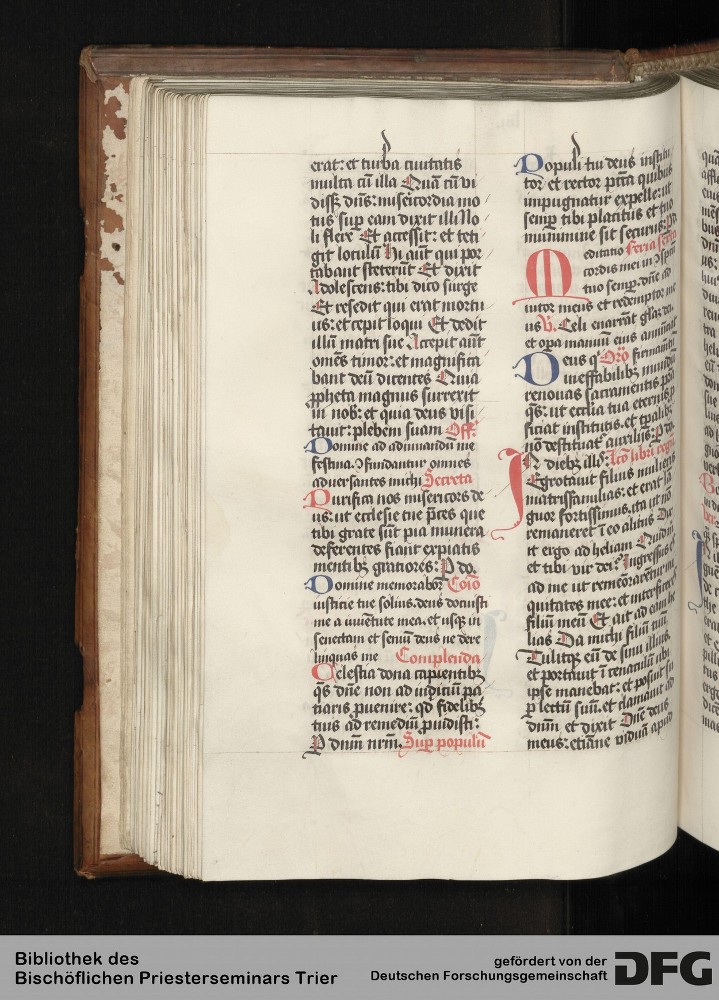 erat: et turba ciuitatis
multa cū illa Quā cū vi
diss; dn̄s: misericordia mo
tus sup eam dixit illi No
li flere Et accessit: et teti
git loculū Hi aūt qui por
tabant steterūt Et dixit
Adolescens: tibi dico surge
Et resedit qui erat mortu
us: et cepit loqui Et dedit
illū matri sue Accepit aūt
omēs timor: et magnifica
bant deū dicentes Quia
ꝓpheta magnus surrexit
in nob: et quia deus visi
tauit: plebem suam Off.
Domine ad adiuuandū me
festina. ꝯfundantur omnes
aduersantes michi Secreta
Purifica nos misericors de
us: ut ecclesie tue p̄ces que
tibi grate sūt pia munera
deferentes fiant expiatis
mentibꝫ graciores: P do.
Domine memorabor Cōio
iusticie tue solius. deus docuisti
me a iuuētute mea. et usqꝫ in
senectam et seniū deus ne dere
linquas me Complenda
Celestia dona capientibꝫ
q̄s dn̄e non ad iudiciū ꝓ
uenire: qd fidelibꝫ
tuis ad remediū ꝓuidisti:
P dnm nrm. Sup populū
Populi tui deus institu
tor et rector pctā quibus
impugnatur expelle: ut
semp tibi placitus et tuo
munimine sit securus: P d
editatio Feria sexta
M cordis mei in ꝯspectu
tuo semp. dn̄e ad
iutor meus et redemptor me
us V. Celi enarrāt gl'az dei.
et opa manuū eius annūciat
Deus q' Orō firmamentū
ineffabilibꝫ mundū
renouas sacramentis p̄sta
q̄s: ut ecclia tua eternis ꝓ
ficiat institutis. et tpalibꝫ
nō destituat' auxilijs: P do.
IN diebꝫ ill' Lc̄o libri regū
Egrotauit filius mulieris
matrisfamilias: et erat lā
guor fortissimus. ita ut nō
remaneret ī eo alitus Dix
it ergo ad heliam Quid m
et tibi vir dei? Ingressus es
ad me ut rememorarētur ini
quitates mee: et interficeres
filiū meū Et ait ad eam he
lias Da michi filiū tuū.
Tulitqꝫ eū de sinu illius.
et portauit ī cenaculū ubi
ipse manebat: et posuit su
p lectū suū. et clamauit ad
dnm et dixit Dn̄e deus
meus: etiāne viduā apud
Bibliothek des
Bischöflichen Priesterseminars Trier
gefördert von der
Deutschen Forschungsgemeinschaft
DFG